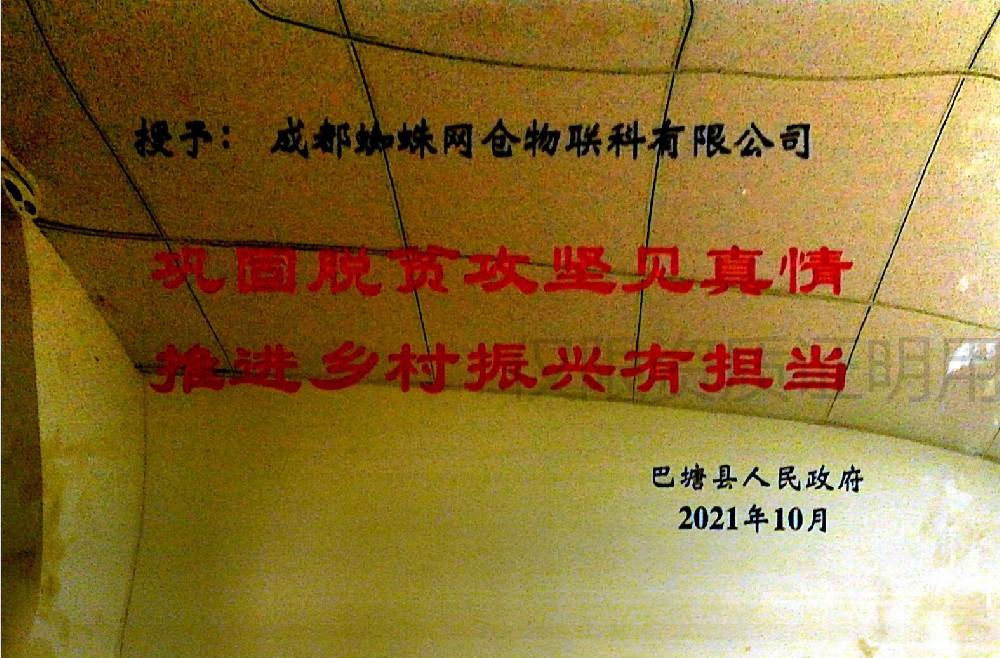 授予：成都蜘蛛网仓物联科有限公司
巩固脱贫攻坚见真情
推进乡村振兴有担当
明用
巴塘县人民政府
2021年10月